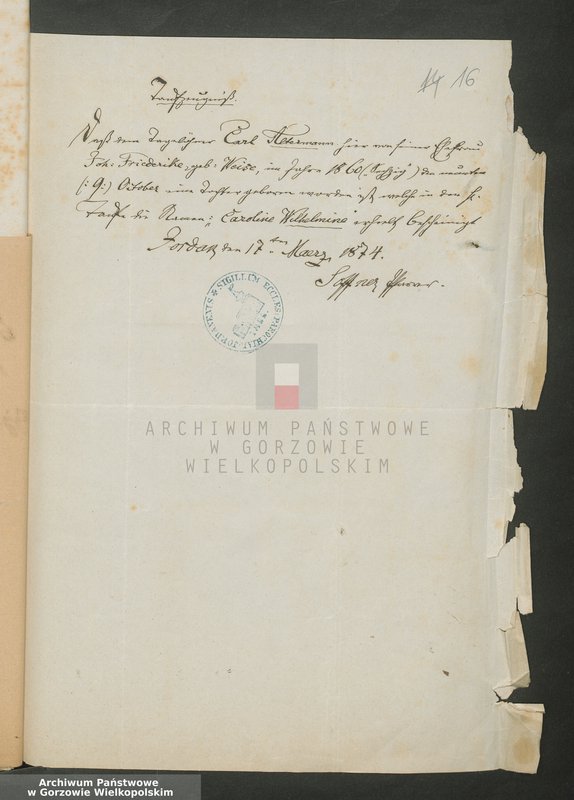 14 16
Taufzeugniß.
Daß dem Tagelöhner Carl Aktermann hier von seiner Ehefrau
Joh: Friederike, geb: Weise, im Jahre 1860 /: Sechzig :/ den neunten
(: 9 :) October eine Tochter geboren worden ist, welche in der h.
Taufe die Namen: "Caroline Wilhelmine" erhielt bescheinigt
Jordan den 17ten Maerz 1874.
Pfarrer.
SIGILLUM ECCLES. PAROCHIAL JORDANENSIS
ARCHIWUM PAŃSTWOWE
W GORZOWIE
WIELKOPOLSKIM
Archiwum Państwowe
w Gorzowie Wielkopolskim